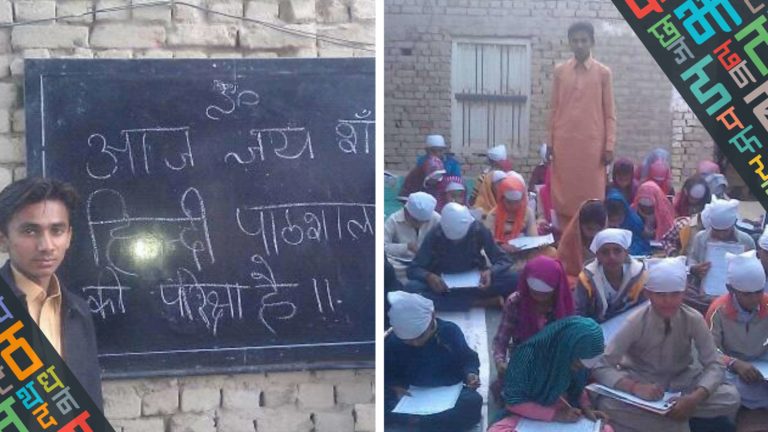 ॐ
आज जय शाँ
हिन्दी पाठशाल
की परिक्षा है ॥